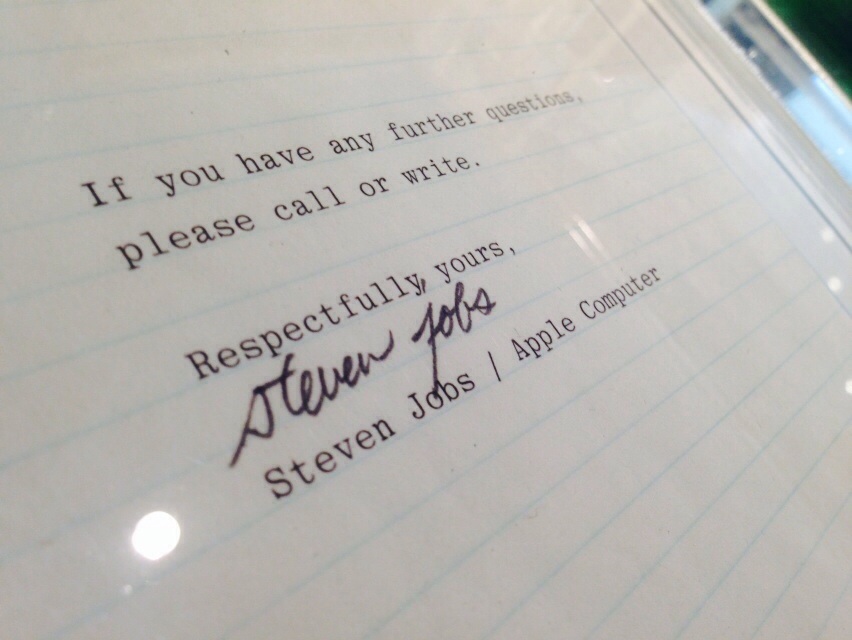 If you have any further questions,
please call or write.
Respectfully, yours,
steven jobs
Steven Jobs | Apple Computer